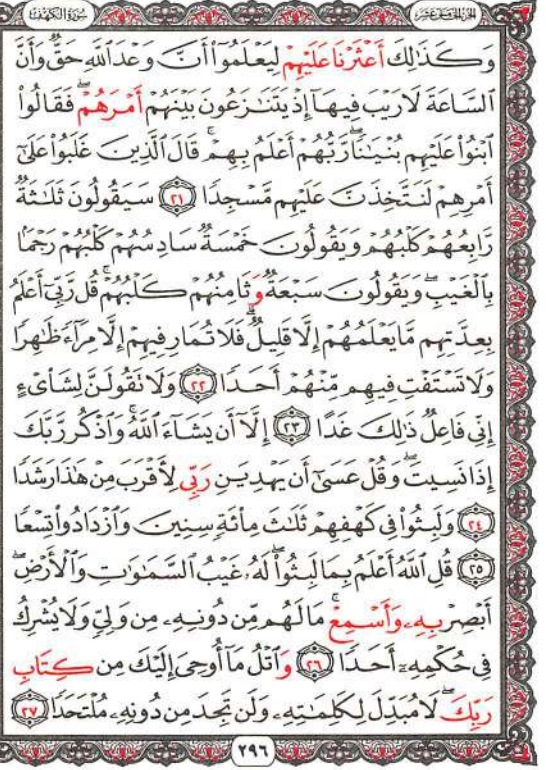 الجزء الخامس عشر
سورة الكهف
وَكَذَٰلِكَ أَعْثَرْنَا عَلَيْهِمْ لِيَعْلَمُوٓا۟ أَنَّ وَعْدَ ٱللَّهِ حَقٌّ وَأَنَّ
ٱلسَّاعَةَ لَا رَيْبَ فِيهَآ إِذْ يَتَنَـٰزَعُونَ بَيْنَهُمْ أَمْرَهُمْ ۖ فَقَالُوا۟
ٱبْنُوا۟ عَلَيْهِم بُنْيَـٰنًا ۖ رَّبُّهُمْ أَعْلَمُ بِهِمْ ۚ قَالَ ٱلَّذِينَ غَلَبُوا۟ عَلَىٰٓ
أَمْرِهِمْ لَنَتَّخِذَنَّ عَلَيْهِم مَّسْجِدًا ﴿٢١﴾ سَيَقُولُونَ ثَلَـٰثَةٌ
رَّابِعُهُمْ كَلْبُهُمْ وَيَقُولُونَ خَمْسَةٌ سَادِسُهُمْ كَلْبُهُمْ رَجْمًۢا
بِٱلْغَيْبِ ۖ وَيَقُولُونَ سَبْعَةٌ وَثَامِنُهُمْ كَلْبُهُمْ ۚ قُل رَّبِّىٓ أَعْلَمُ
بِعِدَّتِهِم مَّا يَعْلَمُهُمْ إِلَّا قَلِيلٌ ۗ فَلَا تُمَارِ فِيهِمْ إِلَّا مِرَآءً ظَـٰهِرًا
وَلَا تَسْتَفْتِ فِيهِم مِّنْهُمْ أَحَدًا ﴿٢٢﴾ وَلَا تَقُولَنَّ لِشَا۟ىْءٍ
إِنِّى فَاعِلٌ ذَٰلِكَ غَدًا ﴿٢٣﴾ إِلَّآ أَن يَشَآءَ ٱللَّهُ ۚ وَٱذْكُر رَّبَّكَ
إِذَا نَسِيتَ وَقُلْ عَسَىٰٓ أَن يَهْدِيَنِ رَبِّى لِأَقْرَبَ مِنْ هَـٰذَا رَشَدًا
﴿٢٤﴾ وَلَبِثُوا۟ فِى كَهْفِهِمْ ثَلَـٰثَ مِا۟ئَةٍ سِنِينَ وَٱزْدَادُوا۟ تِسْعًا
﴿٢٥﴾ قُلِ ٱللَّهُ أَعْلَمُ بِمَا لَبِثُوا۟ ۖ لَهُۥ غَيْبُ ٱلسَّمَـٰوَٰتِ وَٱلْأَرْضِ ۖ
أَبْصِرْ بِهِۦ وَأَسْمِعْ ۚ مَا لَهُم مِّن دُونِهِۦ مِن وَلِىٍّ وَلَا يُشْرِكُ
فِى حُكْمِهِۦٓ أَحَدًا ﴿٢٦﴾ وَٱتْلُ مَآ أُوحِىَ إِلَيْكَ مِن كِتَابِ
رَبِّكَ ۖ لَا مُبَدِّلَ لِكَلِمَـٰتِهِۦ وَلَن تَجِدَ مِن دُونِهِۦ مُلْتَحَدًا ﴿٢٧﴾
٢٩٦